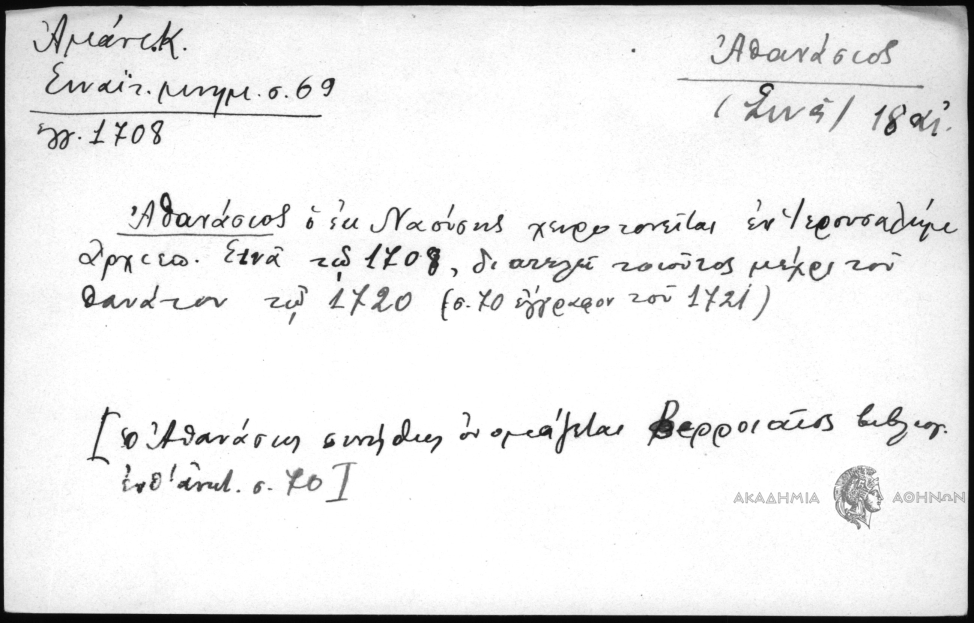 Ἀμάντ. Κ.
Σιναϊτ. μνημ. σ. 69
ἔγγ. 1708
Ἀθανάσιος
(Σινᾶ) 18 αἰ.
Ἀθανάσιος ὁ ἐκ Ναούσης χειροτονεῖται ἐν Ἱερουσαλήμ
Ἀρχιεπ. Σινᾶ τῷ 1708, διατελεῖ τοιοῦτος μέχρι τοῦ
θανάτου τῷ 1720 (σ. 70 ἔγγραφον τοῦ 1721)
[ὁ Ἀθανάσιος συνήθως ὀνομάζεται Βερροιαῖος βιβλιογ.
ἐνθ' ἀνωτ. σ. 70]
ΑΚΑΔΗΜΙΑ ΑΘΗΝΩΝ